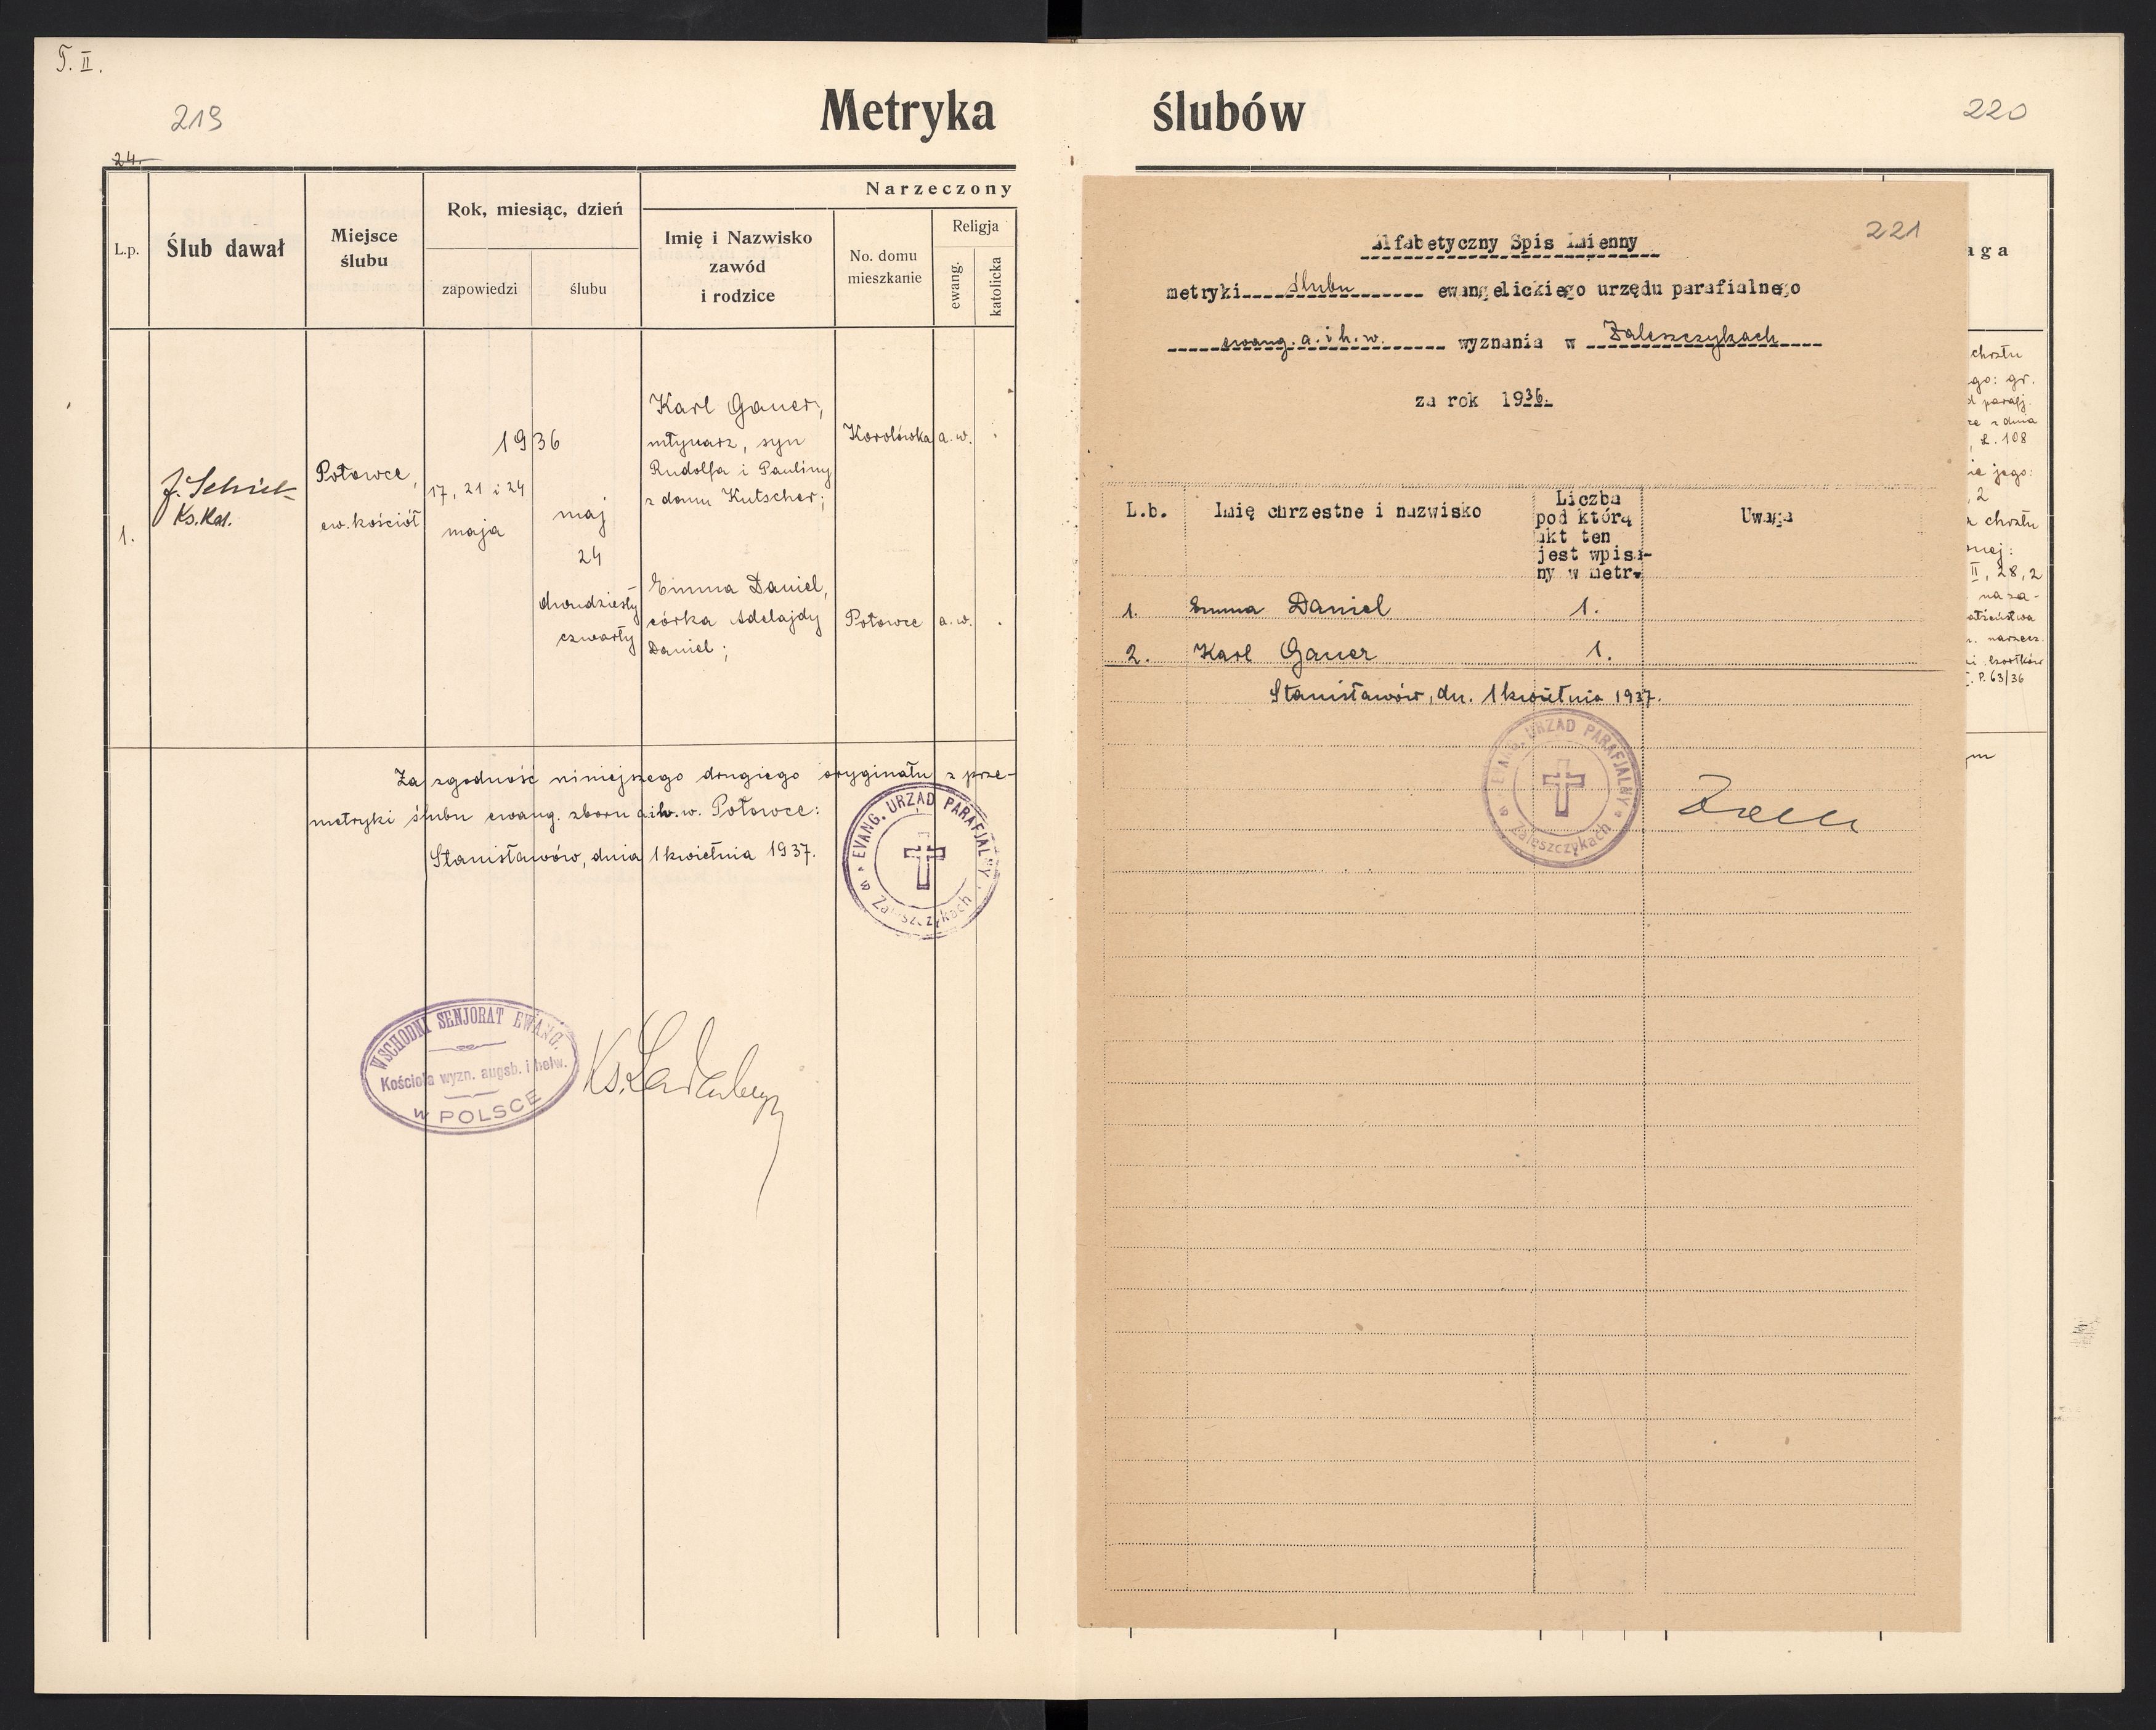 T. II.
219
24.
Metryka ślubów
220
L.p.
Ślub dawał
Miejsce
ślubu
Rok, miesiąc, dzień
zapowiedzi
ślubu
Narzeczony
Imię i Nazwisko
zawód
i rodzice
No. domu
mieszkanie
Religja
ewang.
katolicka
1.
Ks.
Potowce,
ew. kościół
1936
17, 21 i 24
maja
maj
24
dwudziesty
czwarty
Karl Gauer,
młynarz, syn
Rudolfa i Pauliny
z domu Kutscher;
Korolówka
a.w.
Emma Daniel,
córka Adelajdy
Daniel;
Potowce
a.w.
Za zgodność niniejszego drugiego oryginału z prze-
metryki ślubu ewang. zboru a.i h.w. Potowce:
Stanisławów, dnia 1 kwietnia 1937.
EVANG. URZĄD PARAFJALNY
w Zaleszczykach
WSCHODNI SENJORAT EWANG.
Kościoła wyzn. augsb. i helw.
w POLSCE
Ks.
221
Alfabetyczny Spis Imienny
metryki ślubu ewangelickiego urzędu parafialnego
ewang. a. i h. w. wyznania w Zaleszczykach
za rok 1936.
L.b.
Imię chrzestne i nazwisko
Liczba
pod którą
akt ten
jest wpisa-
ny w metr.
Uwaga
1. Emma Daniel 1.
2. Karl Gauer 1.
Stanisławów, dn. 1 kwietnia 1937.
EVANG. URZĄD PARAFJALNY
w Zaleszczykach
aga
chrztu
go: gr.
parafj.
z dnia
L. 108
ie jego:
, 2
chrztu
onej:
II, 28, 2
na za-
narzecz.
P. 63/36
ym